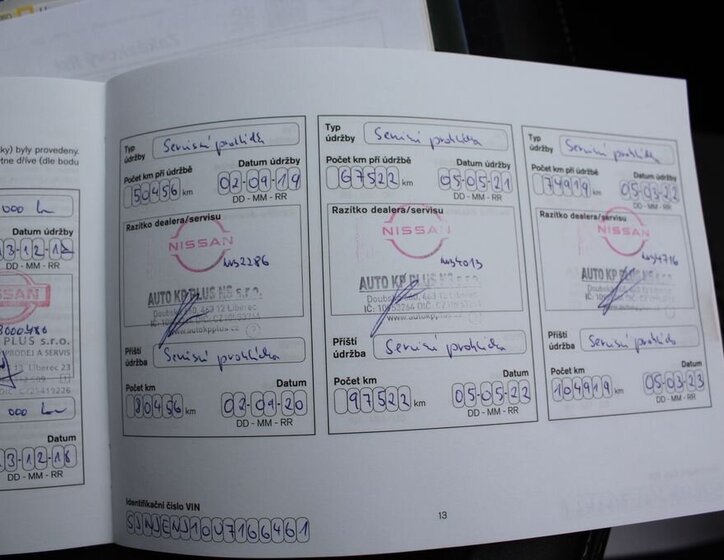 ky) byly provedeny.
tne dříve (dle bodu
000 km
Datum údržby
3-12-1
DD - MM - RR
SSAN
PLUS s.r.o.
PRODEJ A SERVIS
000 km
Datum
3-12-18
DD - MM - RR
Typ údržby Servisní prohlídka
Počet km při údržbě Datum údržby
50456 km 02-09-19
DD - MM - RR
Razítko dealera/servisu
NISSAN
ws2286
AUTO KP PLUS NS s.r.o.
Doubská, 463 12 Liberec
www.autokpplus.cz
Příští údržba Servisní prohlídka
Počet km Datum
80456 km 03-09-20
DD - MM - RR
Typ údržby Servisní prohlídka
Počet km při údržbě Datum údržby
67522 km 05-05-21
DD - MM - RR
Razítko dealera/servisu
NISSAN
ws4013
AUTO KP PLUS NS s.r.o.
463 12 Liberec
Příští údržba Servisní prohlídka
Počet km Datum
97522 km 05-05-22
DD - MM - RR
Typ údržby Servisní prohlídka
Počet km při údržbě Datum údržby
74919 km 05-03-22
DD - MM - RR
Razítko dealera/servisu
NISSAN
ws4716
AUTO KP PLUS NS s.r.o.
Příští údržba Servisní prohlídka
Počet km Datum
104919 km 05-03-23
DD - MM - RR
Identifikační číslo VIN
SJNJENJ10U7166461
13